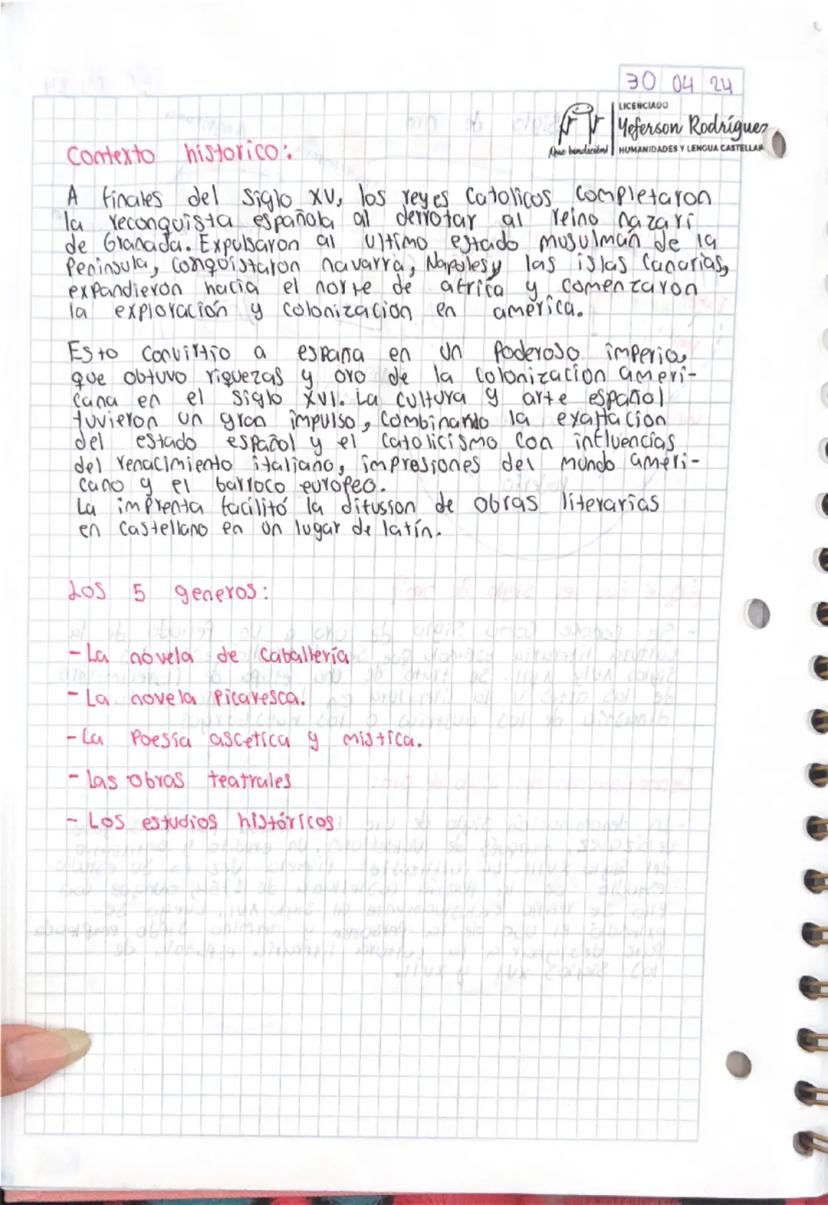 30 04 24
LICENCIADO
Yeferson Rodríguez
¡Que bendición! HUMANIDADES Y LENGUA CASTELLAN
Contexto historico:
A finales del siglo XV, los reyes Catolicos completaron
la reconquista española al derrotar al reino nazarí
de Granada. Expulsaron al ultimo estado musulmán de la
Peninsula, conquistaron navarra, Napoles y las islas Canarias,
expandieron hacia el norte de africa y comenzaron
la exploración y colonizacion en america.
Esto convirtio a españa en un Poderoso imperio,
que obtuvo riquezas y oro de la colonización ameri-
cana en el siglo XVI. La cultura y arte español
tuvieron un gran impulso, combinando la exaltacion
del estado español y el catolicismo con influencias
del renacimiento italiano, impresiones del mundo ameri-
cano y el barroco europeo.
La imprenta facilitó la difusion de obras literarias
en castellano en un lugar de latín.
Los 5 generos:
- La novela de Caballería
- La novela Picaresca.
- La Poesía ascetica y mistica.
- las obras teatrales
- Los estudios históricos